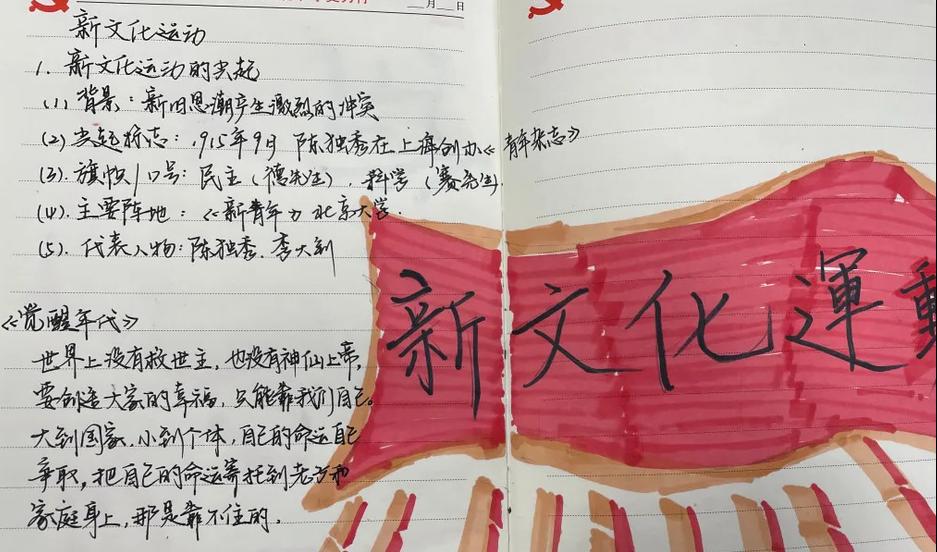 月 日
新文化运动
1. 新文化运动的兴起
(1) 背景：新旧思潮产生激烈的冲突
(2) 兴起标志：1915年9月 陈独秀在上海创办《青年杂志》
(3). 旗帜/口号：民主（德先生）, 科学（赛先生).
(4). 主要阵地：《新青年》北京大学.
(5). 代表人物：陈独秀. 李大钊
《觉醒年代》
世界上没有救世主，也没有神仙上帝，
要创造大家的幸福，只能靠我们自己。
大到国家，小到个体，自己的命运自己
争取，把自己的命运寄托到老师和
家庭身上，那是靠不住的.
新文化運動